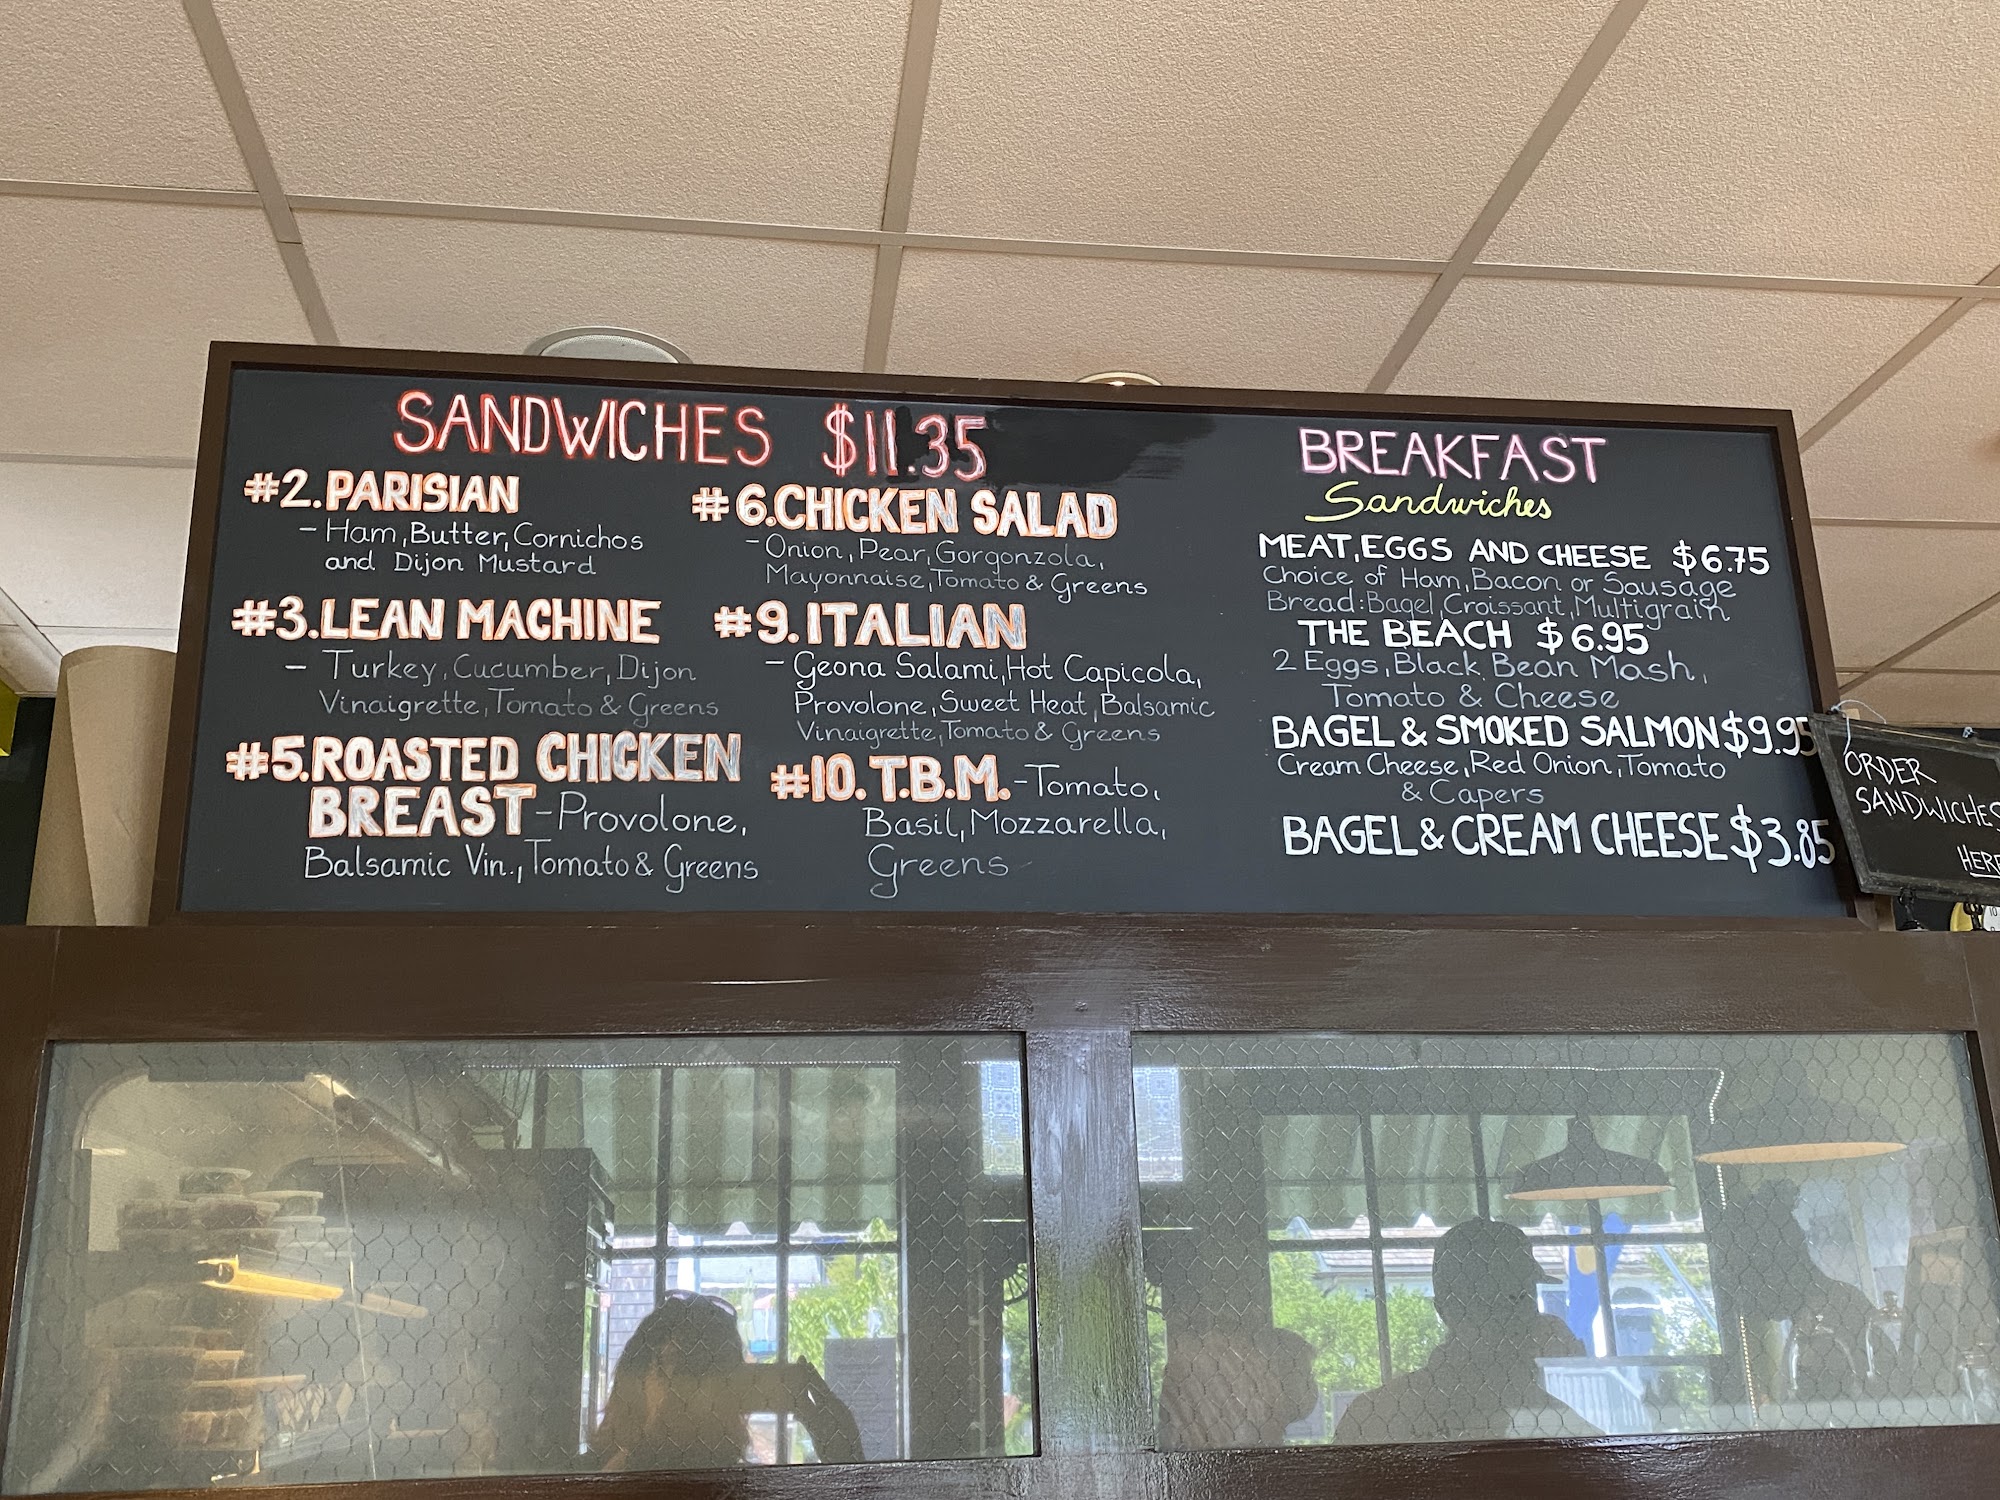 SANDWICHES $11.35
#2. PARISIAN
- Ham, Butter, Cornichos
and Dijon Mustard
#3. LEAN MACHINE
- Turkey, Cucumber, Dijon
Vinaigrette, Tomato & Greens
#5. ROASTED CHICKEN
BREAST - Provolone,
Balsamic Vin., Tomato & Greens
#6. CHICKEN SALAD
- Onion, Pear, Gorgonzola,
Mayonnaise, Tomato & Greens
#9. ITALIAN
- Geona Salami, Hot Capicola,
Provolone, Sweet Heat, Balsamic
Vinaigrette, Tomato & Greens
#10. T.B.M. - Tomato,
Basil, Mozzarella,
Greens
BREAKFAST
Sandwiches
MEAT, EGGS AND CHEESE $6.75
Choice of Ham, Bacon or Sausage
Bread: Bagel, Croissant, Multigrain
THE BEACH $6.95
2 Eggs, Black Bean Mash,
Tomato & Cheese
BAGEL & SMOKED SALMON $9.95
Cream Cheese, Red Onion, Tomato
& Capers
BAGEL & CREAM CHEESE $3.85
ORDER
SANDWICHES
HERE